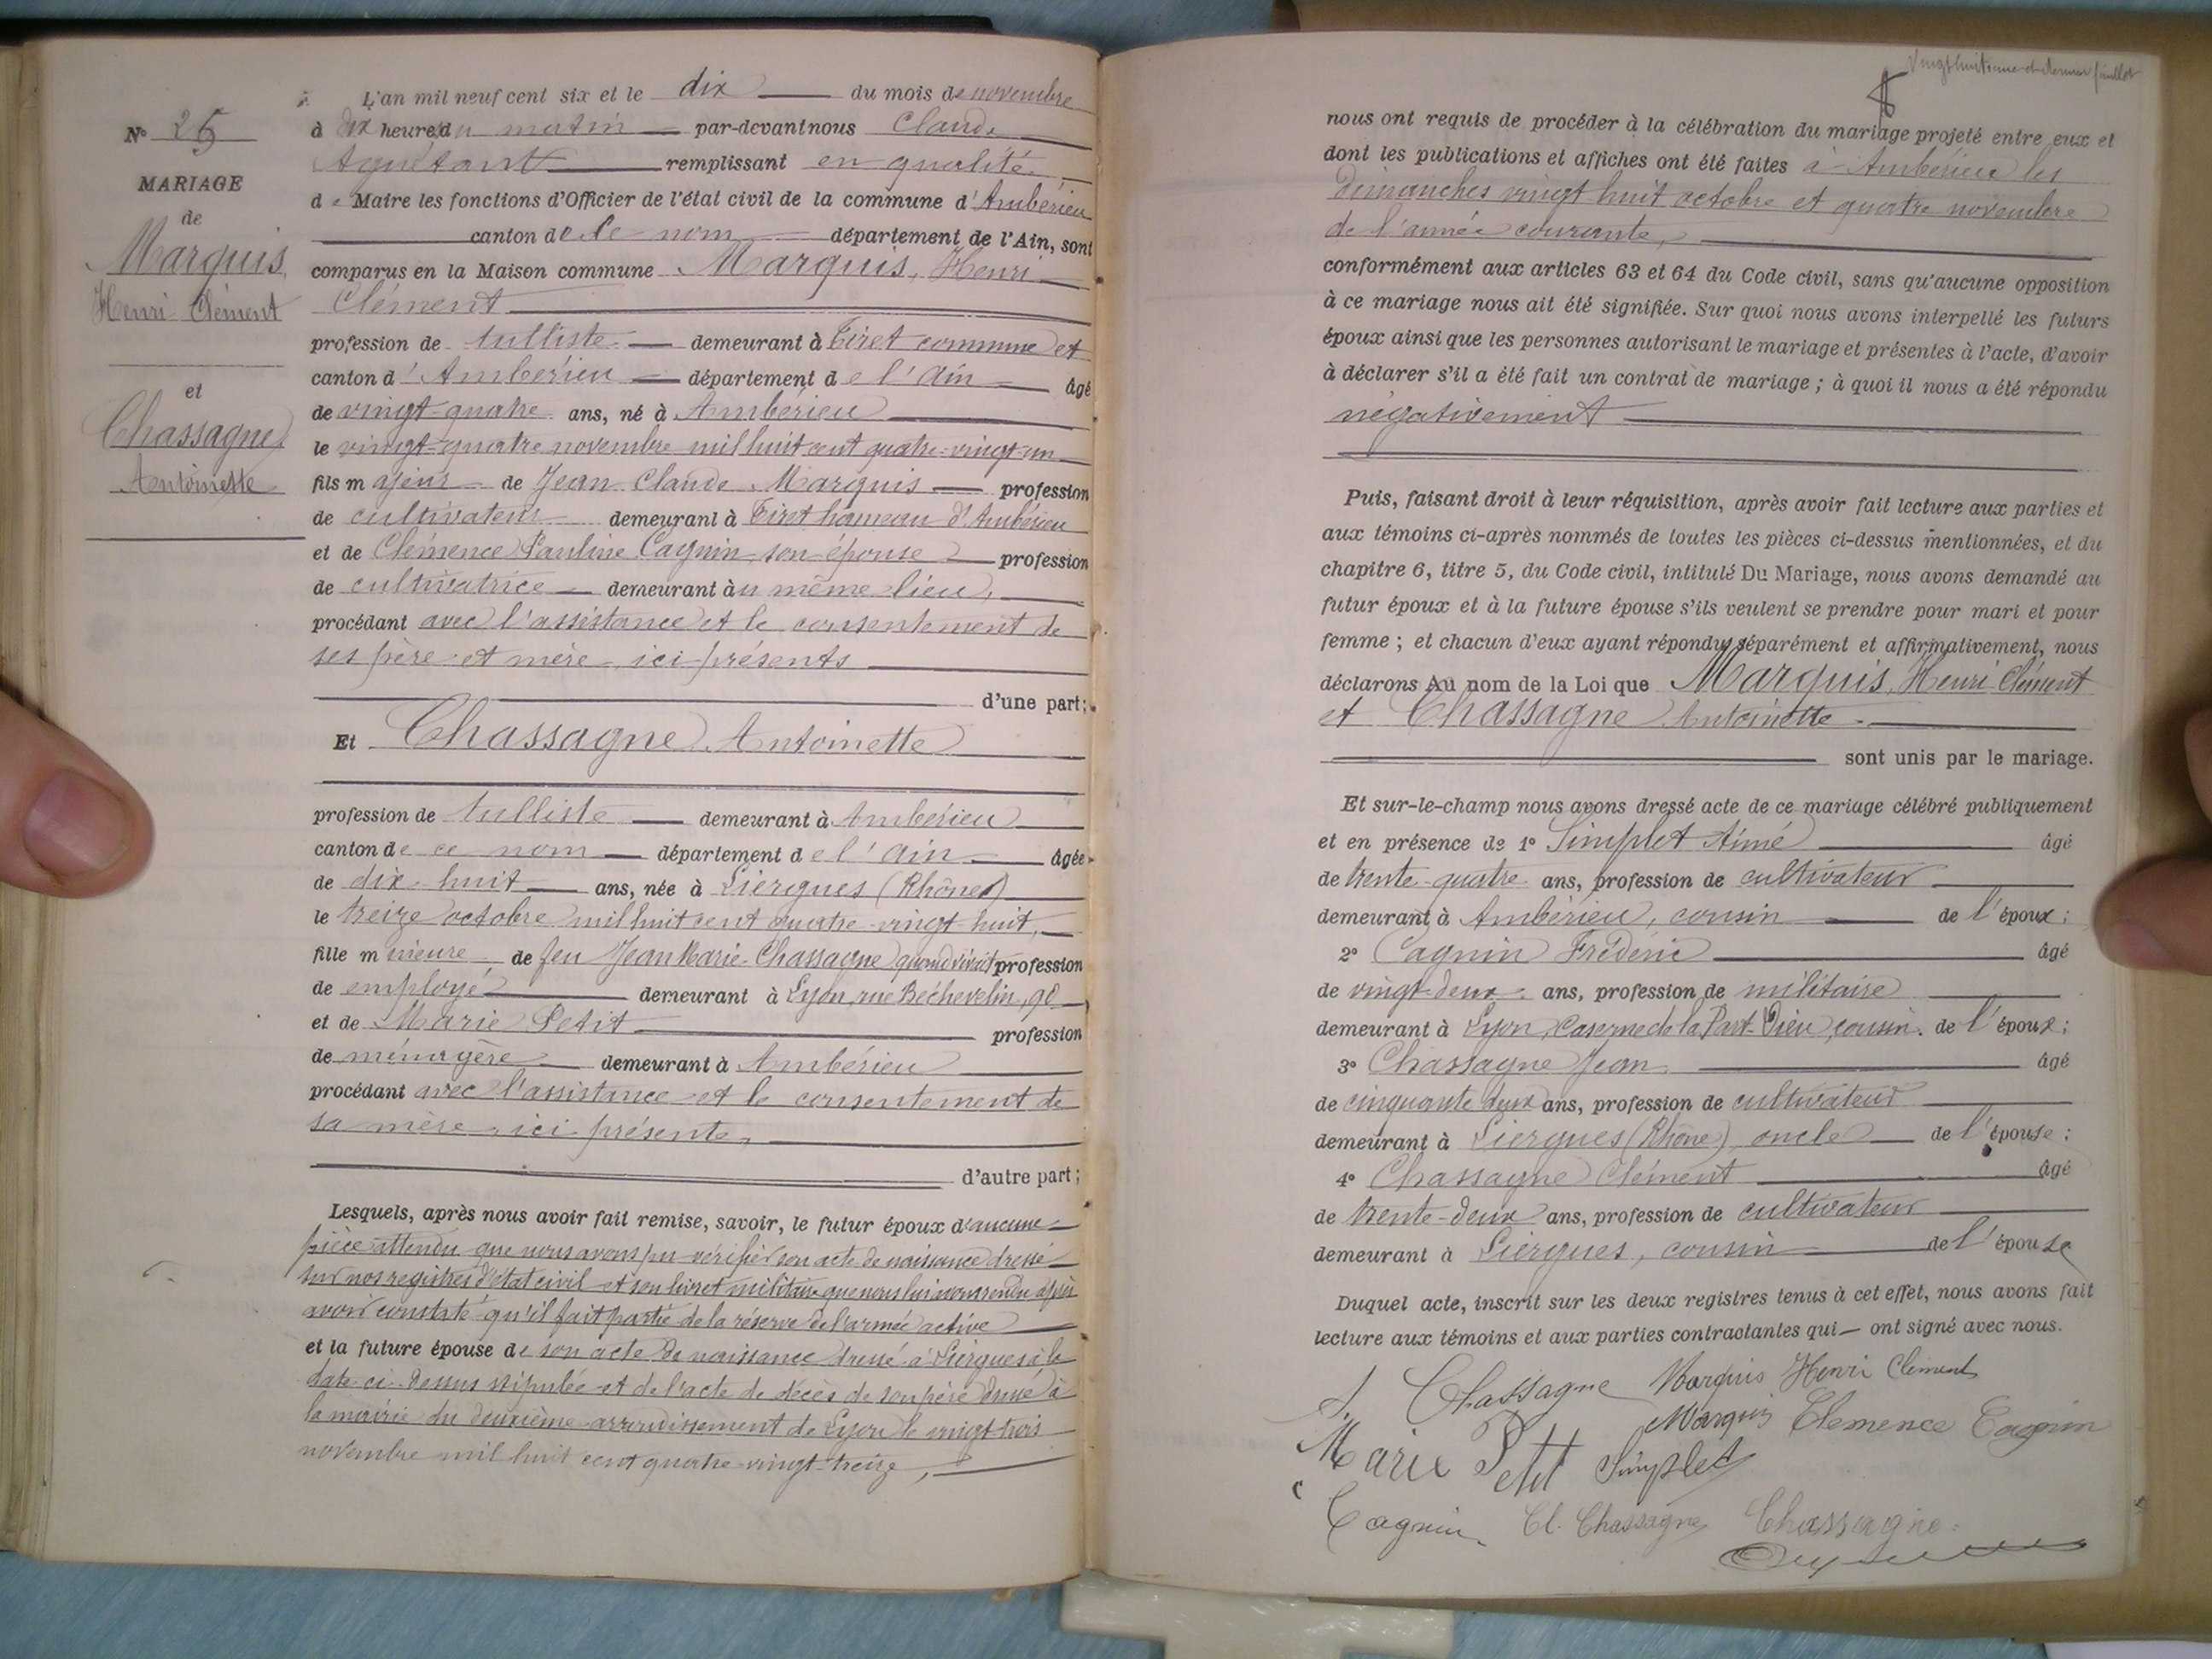 L'an mil neuf cent six et le dix du mois de novembre
à dix heures du matin par-devant nous Claude
Aguétant remplissant en qualité
de Maire les fonctions d'Officier de l'état civil de la commune d'Ambérieu
canton de ce nom département de l'Ain, sont
comparus en la Maison commune Marquis, Henri
Clément
profession de tulliste demeurant à Tiret commune et
canton d'Ambérieu département de l'Ain âgé
de vingt-quatre ans, né à Ambérieu
le vingt-quatre novembre mil huit cent quatre-vingt-un
fils majeur de Jean Claude Marquis profession
de cultivateur demeurant à Tiret hameau d'Ambérieu
et de Clémence Pauline Cagnin son épouse profession
de cultivatrice demeurant au même lieu,
procédant avec l'assistance et le consentement de
ses père et mère ici présents
d'une part;
Et Chassagne Antoinette
profession de tulliste demeurant à Ambérieu
canton de ce nom département de l'Ain âgée
de dix-huit ans, née à Liergues (Rhône)
le treize octobre mil huit cent quatre-vingt-huit,
fille mineure de feu Jean Marie Chassagne quand vivait profession
de employé demeurant à Lyon, rue Béchevelin, 90
et de Marie Petit profession
de ménagère demeurant à Ambérieu
procédant avec l'assistance et le consentement de
sa mère, ici présente,
d'autre part;
Lesquels, après nous avoir fait remise, savoir, le futur époux d'aucune
pièce attendu que nous avons pu vérifier son acte de naissance dressé
sur nos registres d'état civil et son livret militaire que nous lui avons rendu après
avoir constaté qu'il fait partie de la réserve de l'armée active
et la future épouse de son acte de naissance dressé à Liergues à la
date ci-dessus stipulée et de l'acte de décès de son père dressé à
la mairie du deuxième arrondissement de Lyon le vingt-trois
novembre mil huit cent quatre-vingt-treize,
N° 25
MARIAGE
de
Marquis
Henri Clément
et
Chassagne
Antoinette
Vingt huitième et dernier feuillet
nous ont requis de procéder à la célébration du mariage projeté entre eux et
dont les publications et affiches ont été faites à Ambérieu les
dimanches vingt-huit octobre et quatre novembre
de l'année courante,
conformément aux articles 63 et 64 du Code civil, sans qu'aucune opposition
à ce mariage nous ait été signifiée. Sur quoi nous avons interpellé les futurs
époux ainsi que les personnes autorisant le mariage et présentes à l'acte, d'avoir
à déclarer s'il a été fait un contrat de mariage ; à quoi il nous a été répondu
négativement
Puis, faisant droit à leur réquisition, après avoir fait lecture aux parties et
aux témoins ci-après nommés de toutes les pièces ci-dessus mentionnées, et du
chapitre 6, titre 5, du Code civil, intitulé Du Mariage, nous avons demandé au
futur époux et à la future épouse s'ils veulent se prendre pour mari et pour
femme ; et chacun d'eux ayant répondu séparément et affirmativement, nous
déclarons Au nom de la Loi que Marquis, Henri Clément
et Chassagne Antoinette
sont unis par le mariage.
Et sur-le-champ nous avons dressé acte de ce mariage célébré publiquement
et en présence de 1° Simplet Aimé âgé
de trente-quatre ans, profession de cultivateur
demeurant à Ambérieu, cousin de l'époux;
2° Cagnin Frédéric âgé
de vingt-deux ans, profession de militaire
demeurant à Lyon, Caserne de la Part-Dieu, cousin de l'époux;
3° Chassagne Jean âgé
de cinquante deux ans, profession de cultivateur
demeurant à Liergues (Rhône) oncle de l'épouse;
4° Chassagne Clément âgé
de trente-deux ans, profession de cultivateur
demeurant à Liergues, cousin de l'épouse
Duquel acte, inscrit sur les deux registres tenus à cet effet, nous avons fait
lecture aux témoins et aux parties contractantes qui — ont signé avec nous.
A. Chassagne Marquis Henri Clément
Marquis Clemence Cagnin
Marie Petit Simplet
Cagnin Cl. Chassagne Chassagne